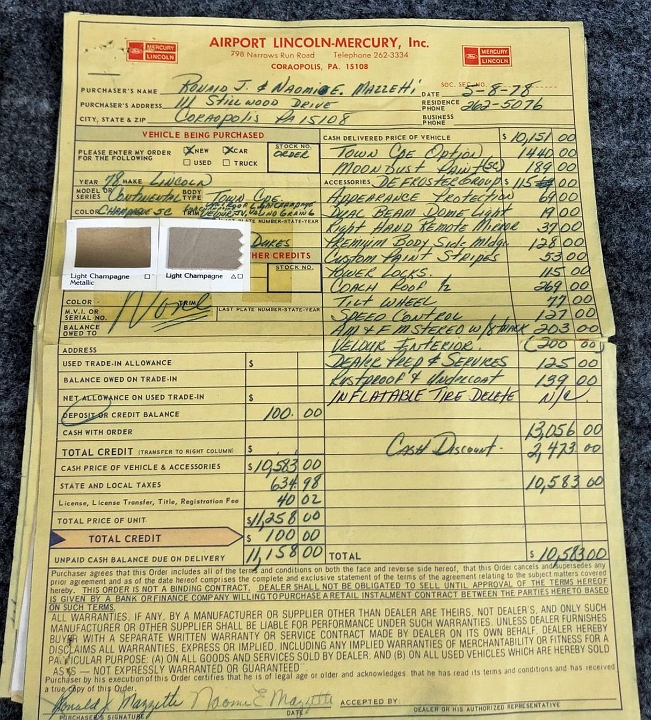 MERCURY LINCOLN
AIRPORT LINCOLN-MERCURY, Inc.
MERCURY LINCOLN
798 Narrows Run Road Telephone 262-3334
CORAOPOLIS, PA. 15108
PURCHASER'S NAME Ronald J. & Naomi E. Mazzetti SOC. SEC. NO. DATE 5-8-78
PURCHASER'S ADDRESS 111 Stillwood Drive RESIDENCE PHONE 262-5076
CITY, STATE & ZIP Coraopolis PA 15108 BUSINESS PHONE
VEHICLE BEING PURCHASED
CASH DELIVERED PRICE OF VEHICLE $ 10,151 00
PLEASE ENTER MY ORDER FOR THE FOLLOWING X NEW X CAR USED TRUCK STOCK NO. ORDER
Town Cpe Option 1440 00
Moondust Paint (5C) 189 00
YEAR 78 MAKE LINCOLN
ACCESSORIES DEFROSTER GROUP $ 115 00
MODEL OR SERIES Continental BODY TYPE Town Cpe.
Appearance Protection 69 00
COLOR Champagne 5C
Dual Beam Dome Light 19 00
Right Hand Remote Mirror 37 00
Premium Body Side Mldg. 128 00
Custom Paint Stripes 53 00
Power Locks. 115 00
Coach Roof 1/2 269 00
Light Champagne Metallic
Light Champagne
HER CREDITS
STOCK NO.
COLOR TRIM
None
Tilt Wheel 77 00
M.V.I. OR SERIAL NO. LAST PLATE NUMBER-STATE-YEAR
Speed Control 127 00
BALANCE OWED TO
AM & FM Stereo 203 00
ADDRESS
Velour Interior (200 00)
USED TRADE-IN ALLOWANCE $
Dealer Prep & Services 125 00
BALANCE OWED ON TRADE-IN
Rustproof & Undercoat 139 00
NET ALLOWANCE ON USED TRADE-IN $
INFLATABLE TIRE DELETE N/C
DEPOSIT OR CREDIT BALANCE 100 00
CASH WITH ORDER 13,056 00
TOTAL CREDIT (TRANSFER TO RIGHT COLUMN) $
Cash Discount. 2,473 00
CASH PRICE OF VEHICLE & ACCESSORIES $ 10,583 00
STATE AND LOCAL TAXES 634 98
10,583 00
License, License Transfer, Title, Registration Fee 40 02
TOTAL PRICE OF UNIT $ 11,258 00
TOTAL CREDIT $ 100 00
UNPAID CASH BALANCE DUE ON DELIVERY 11,158 00 TOTAL $ 10,583 00
Purchaser agrees that this Order includes all of the terms and conditions on both the face and reverse side hereof, that this Order cancels and supersedes any
prior agreement and as of the date hereof comprises the complete and exclusive statement of the terms of the agreement relating to the subject matters covered
hereby. THIS ORDER IS NOT A BINDING CONTRACT, DEALER SHALL NOT BE OBLIGATED TO SELL UNTIL APPROVAL OF THE TERMS HEREOF
IS GIVEN BY A BANK OR FINANCE COMPANY WILLING TO PURCHASE A RETAIL INSTALMENT CONTRACT BETWEEN THE PARTIES HERETO BASED
ON SUCH TERMS.
ALL WARRANTIES, IF ANY, BY A MANUFACTURER OR SUPPLIER OTHER THAN DEALER ARE THEIRS, NOT DEALER'S, AND ONLY SUCH
MANUFACTURER OR OTHER SUPPLIER SHALL BE LIABLE FOR PERFORMANCE UNDER SUCH WARRANTIES. UNLESS DEALER FURNISHES
BUYER WITH A SEPARATE WRITTEN WARRANTY OR SERVICE CONTRACT MADE BY DEALER ON ITS OWN BEHALF, DEALER HEREBY
DISCLAIMS ALL WARRANTIES, EXPRESS OR IMPLIED, INCLUDING ANY IMPLIED WARRANTIES OF MERCHANTABILITY OR FITNESS FOR A
PARTICULAR PURPOSE: (A) ON ALL GOODS AND SERVICES SOLD BY DEALER, AND (B) ON ALL USED VEHICLES WHICH ARE HEREBY SOLD
AS IS — NOT EXPRESSLY WARRANTED OR GUARANTEED
Purchaser by his execution of this Order certifies that he is of legal age or older and acknowledges that he has read its terms and conditions and has received
a true copy of this Order.
Ronald J. Mazzetti Naomi E Mazzetti ACCEPTED BY:
PURCHASER'S SIGNATURE DATE DEALER OR HIS AUTHORIZED REPRESENTATIVE